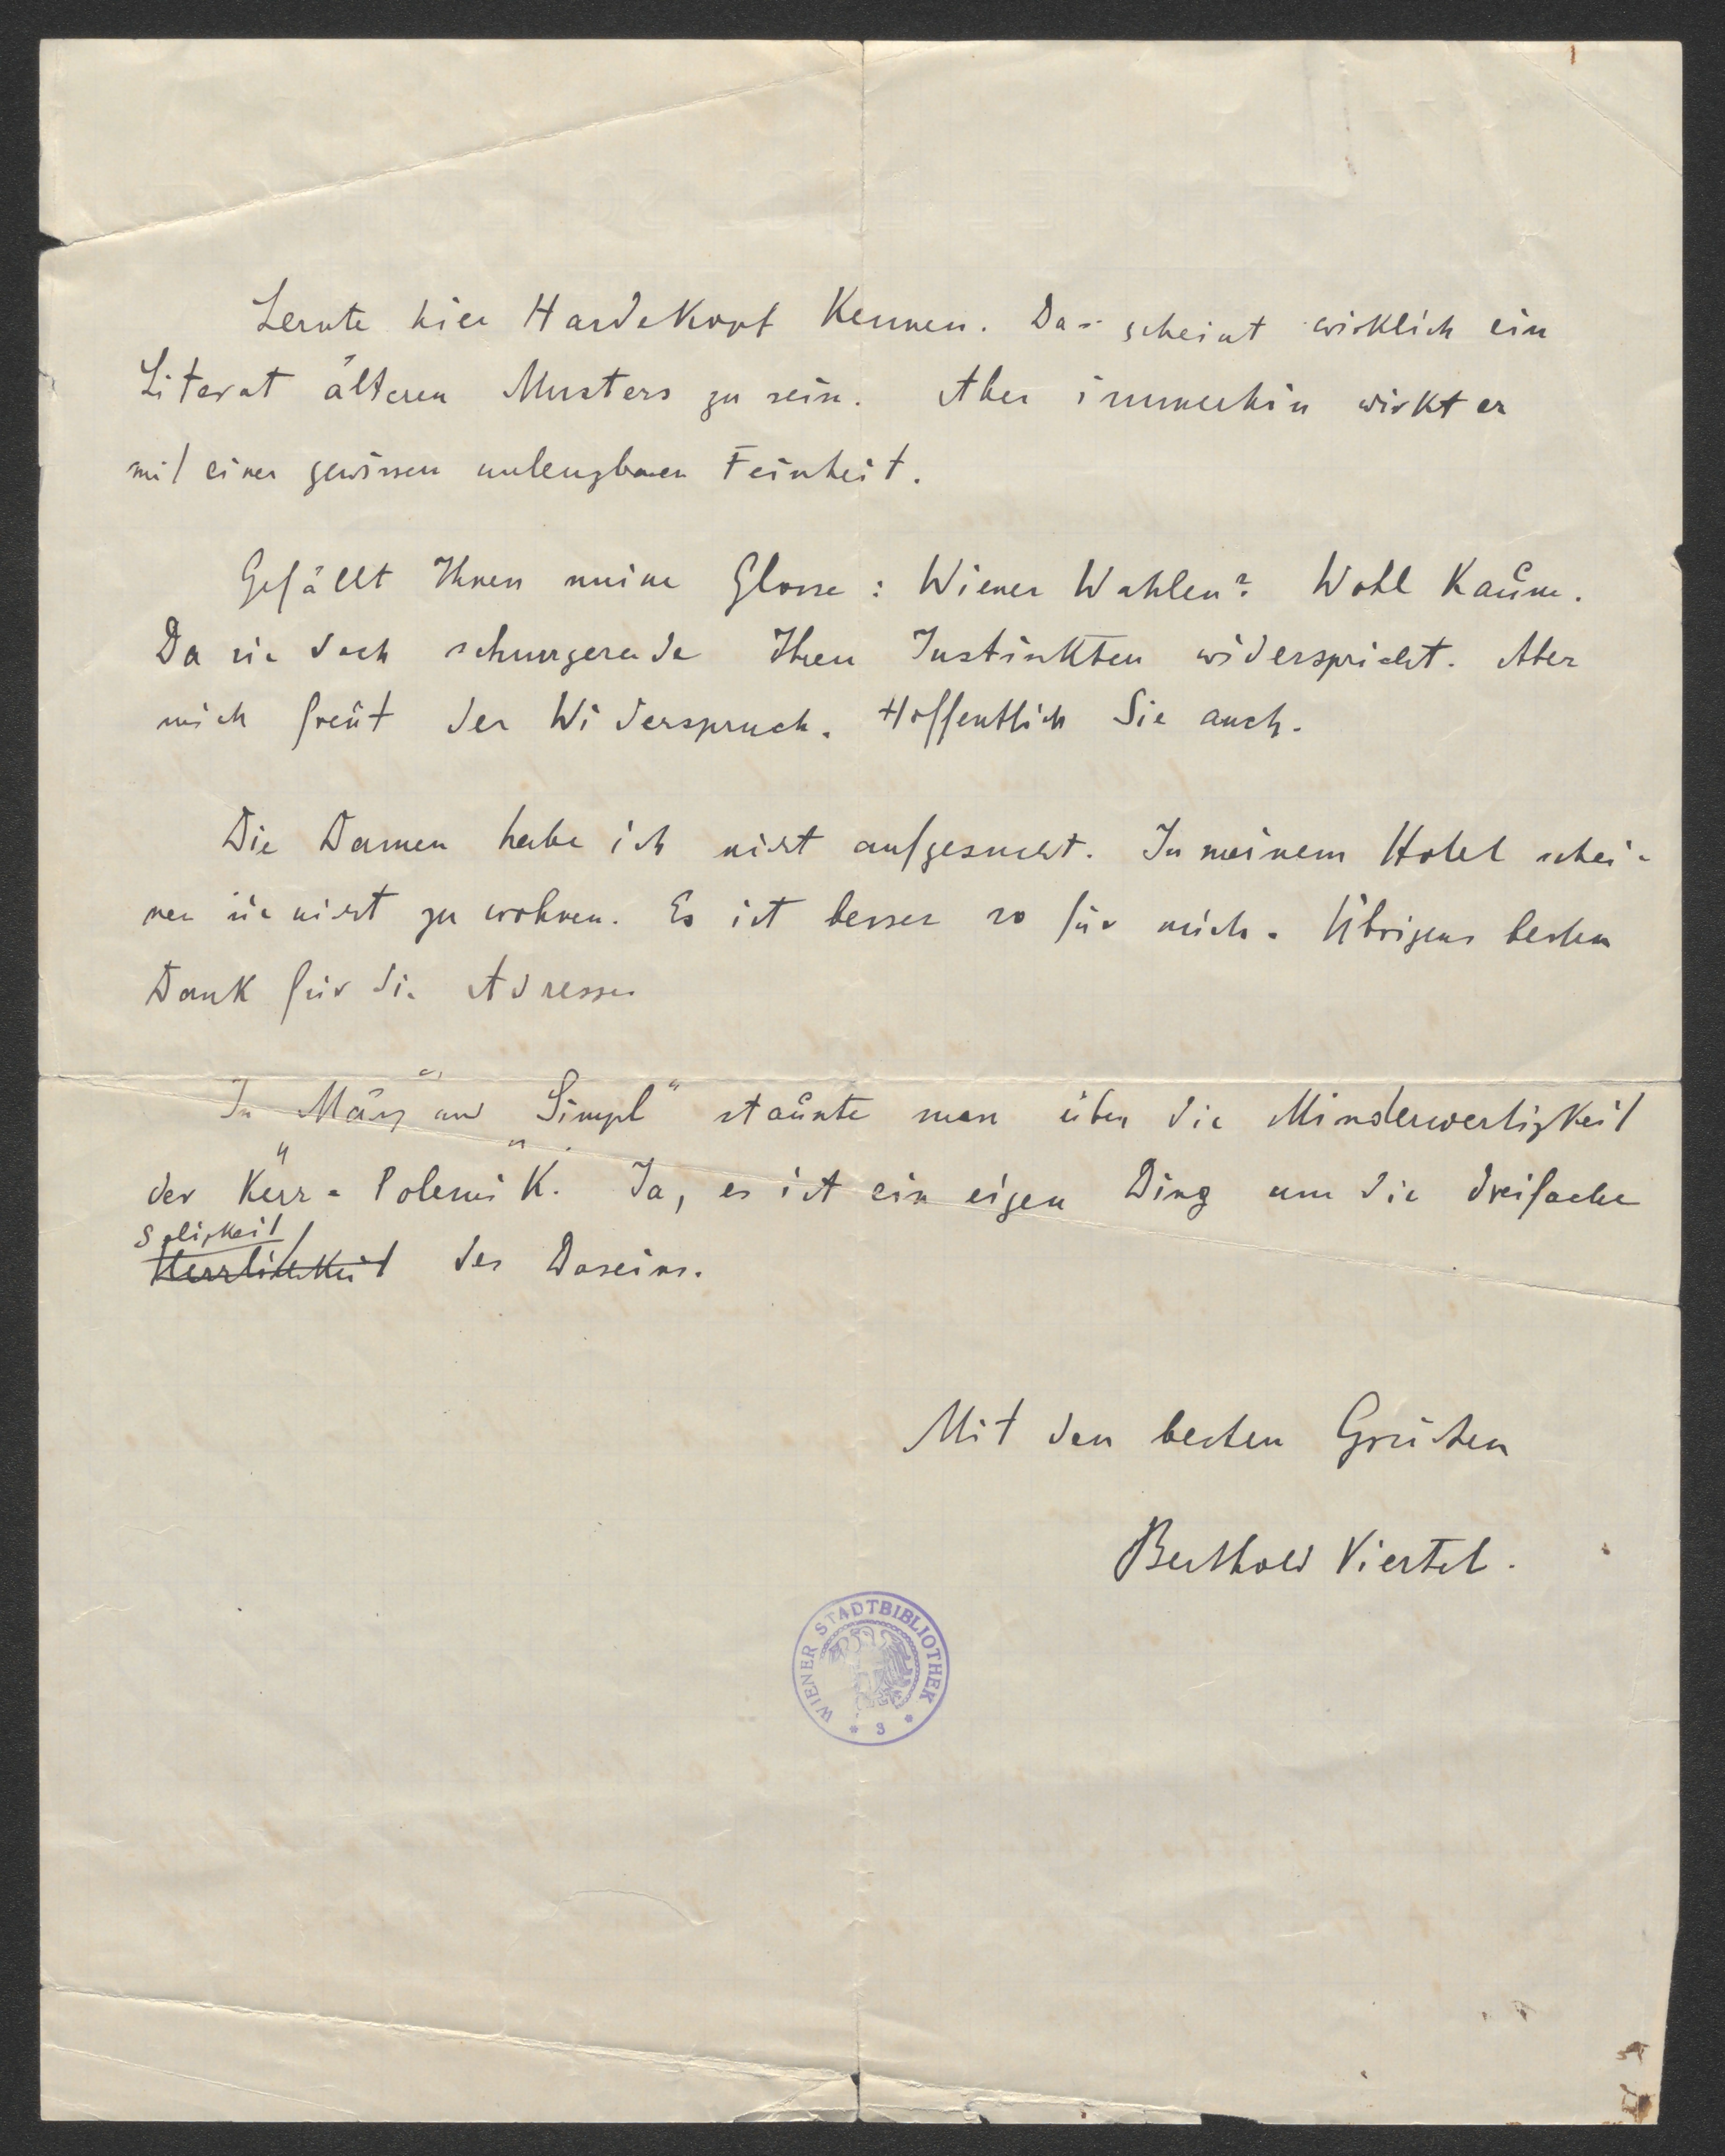 Lernte hier Hardekopf kennen. Das scheint wirklich ein
Literat älteren Musters zu sein. Aber immerhin wirkt er
mit einer gewissen unleugbaren Feinheit.
Gefällt Ihnen meine Glosse: Wiener Wahlen? Wohl kaum.
Da sie doch schnurgerade Ihren Instinkten widerspricht. Aber
mich freut der Widerspruch. Hoffentlich Sie auch.
Die Damen habe ich nicht aufgesucht. In meinem Hotel schei-
nen sie nicht zu wohnen. Es ist besser so für mich. Übrigens besten
Dank für die Adresse
In März und „Simpl“ staunte man über die Minderwertigkeit
der „Kerr-Polemik“. Ja, es ist ein eigen Ding um die dreifache
Seligkeit
Herrlichkeit des Daseins.
Mit den besten Grüßen
Berthold Viertel.
WIENER STADTBIBLIOTHEK
* 3 *